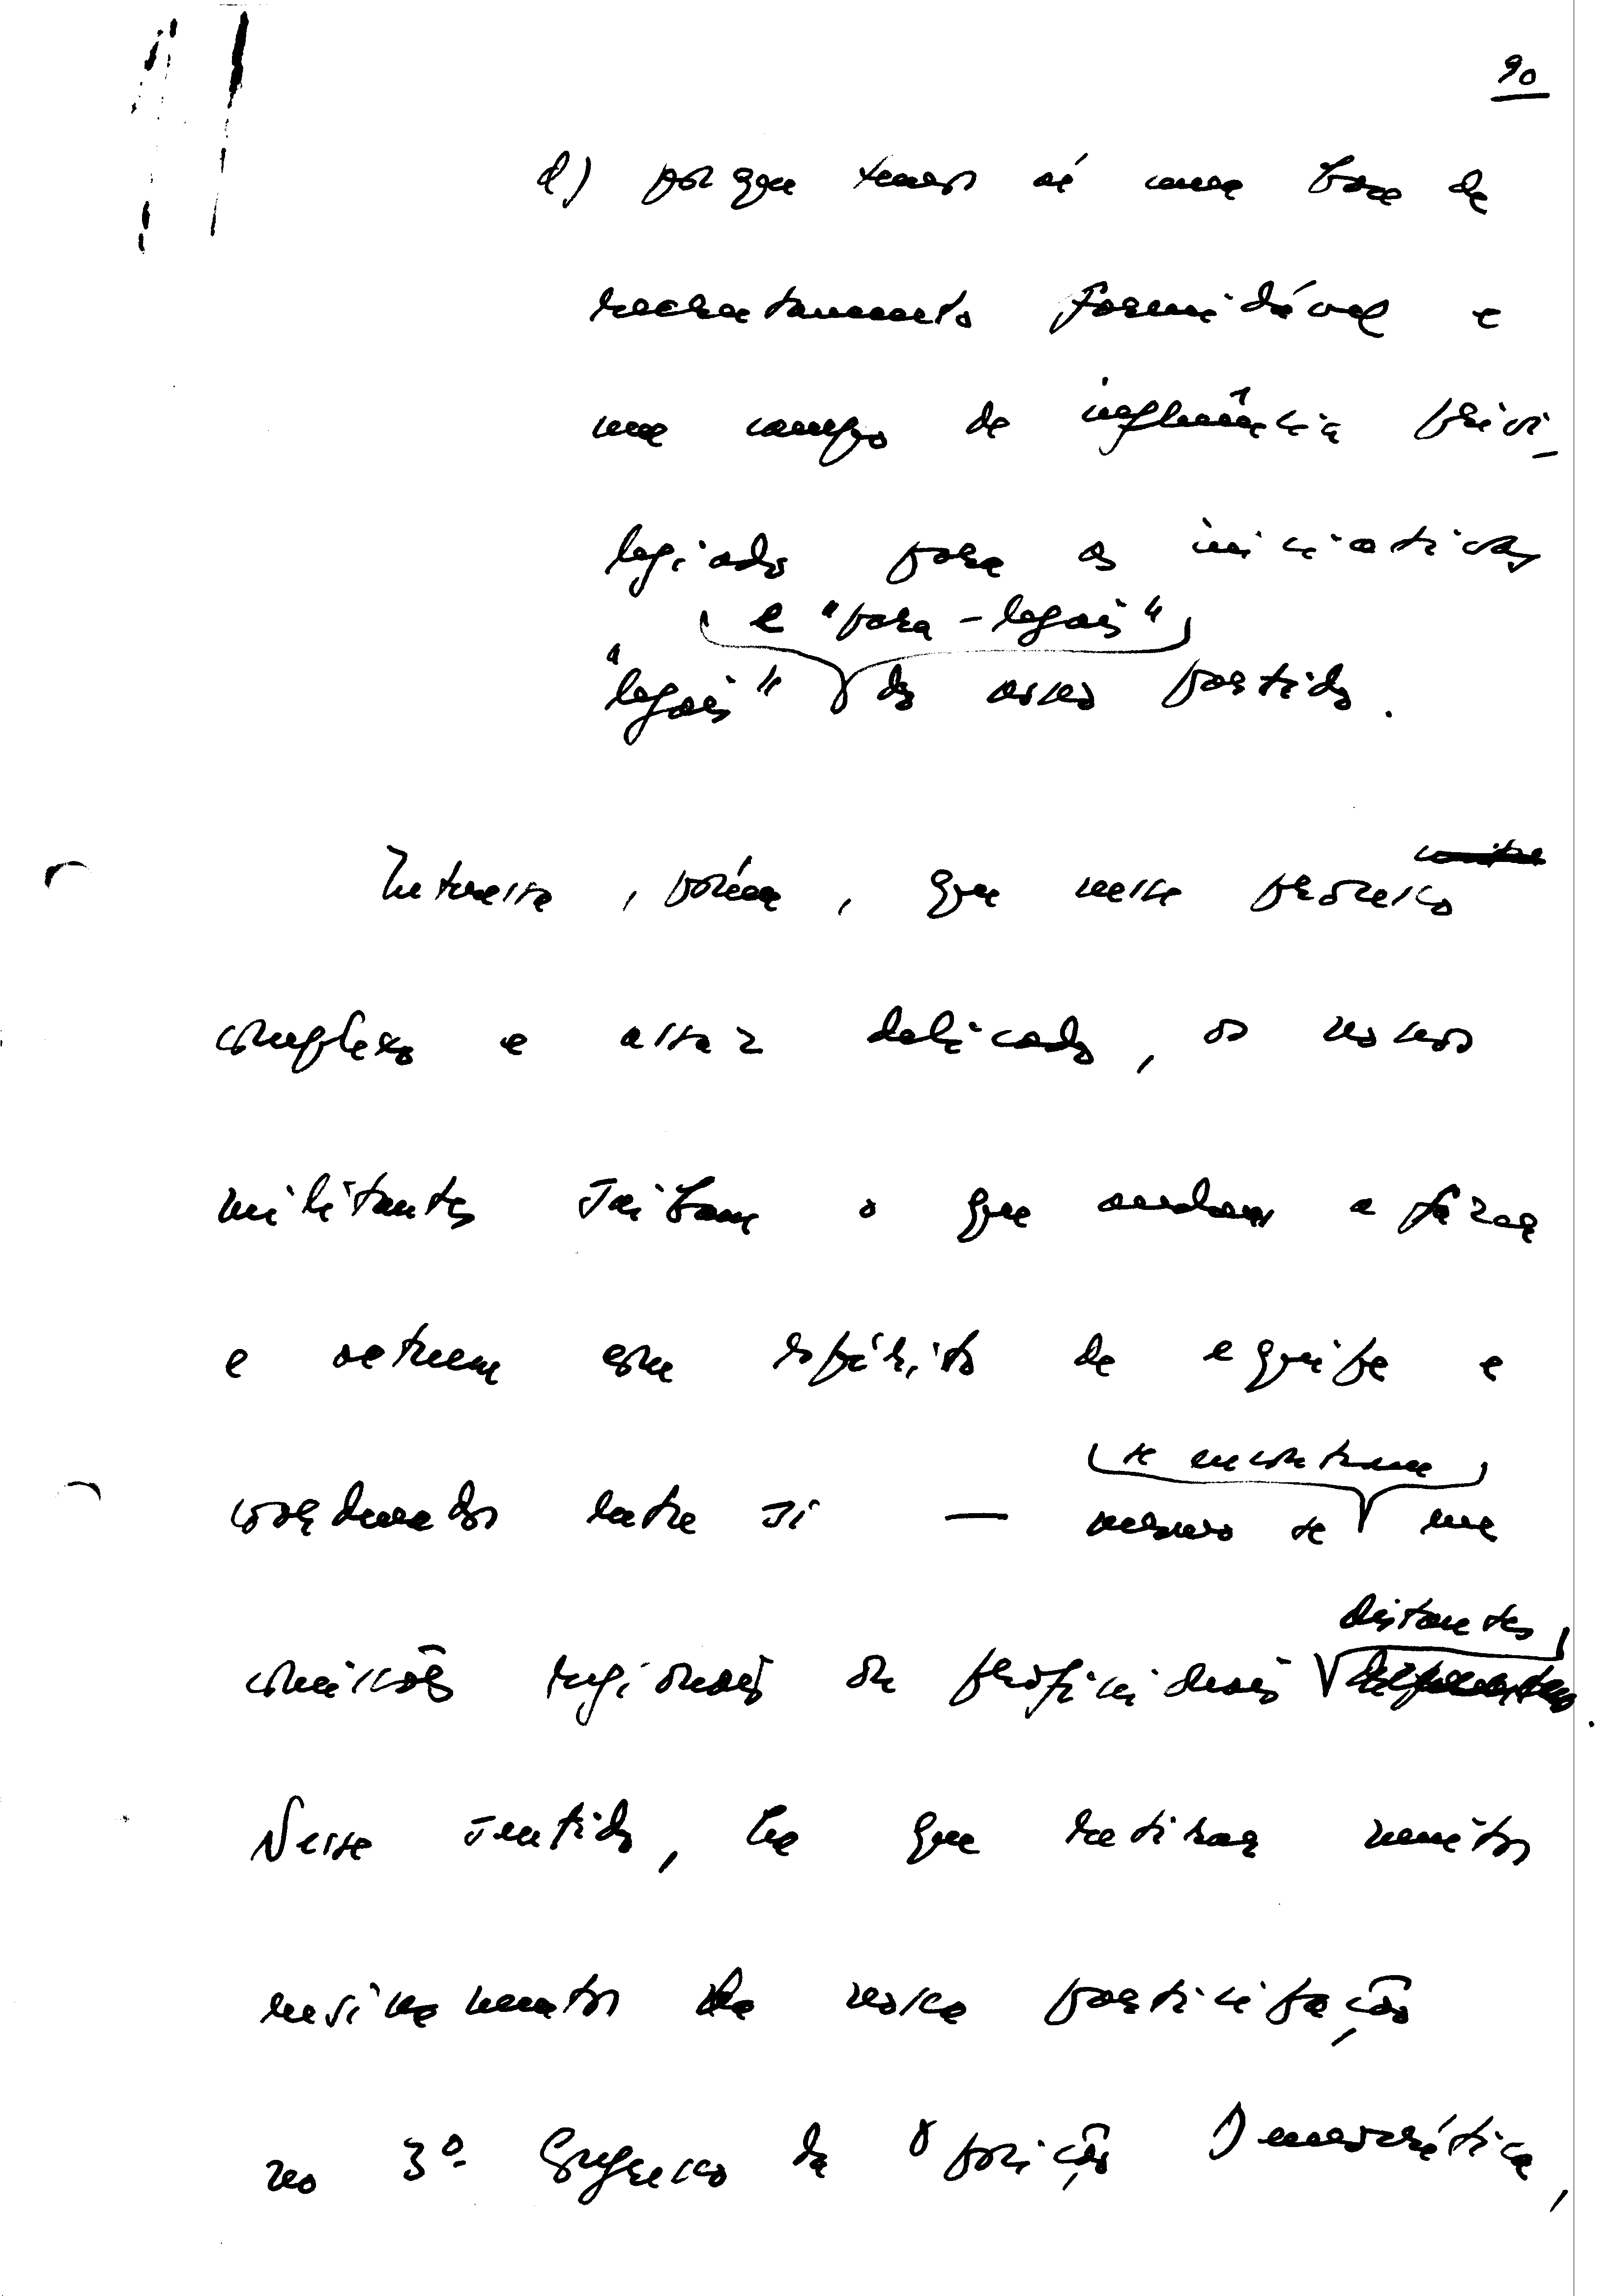 90
d) porque temos aí uma base de
recrutamento formidável e
um campo de influência privi-
legiado para as iniciativas
e "para-legais"
"legais" do nosso partido.
Interessa, porém, que nesse processo
complexo e assaz delicado, os nossos
militantes saibam o que andam a fazer
e actuem com espírito de equipe e
coordenados entre si — mesmo se
se encontram em
comissões regionais ou profissionais
distantes.
Nesse sentido, há que retirar muitos
ensinamentos da nossa participação
no 3º Congresso da Oposição Democrática,